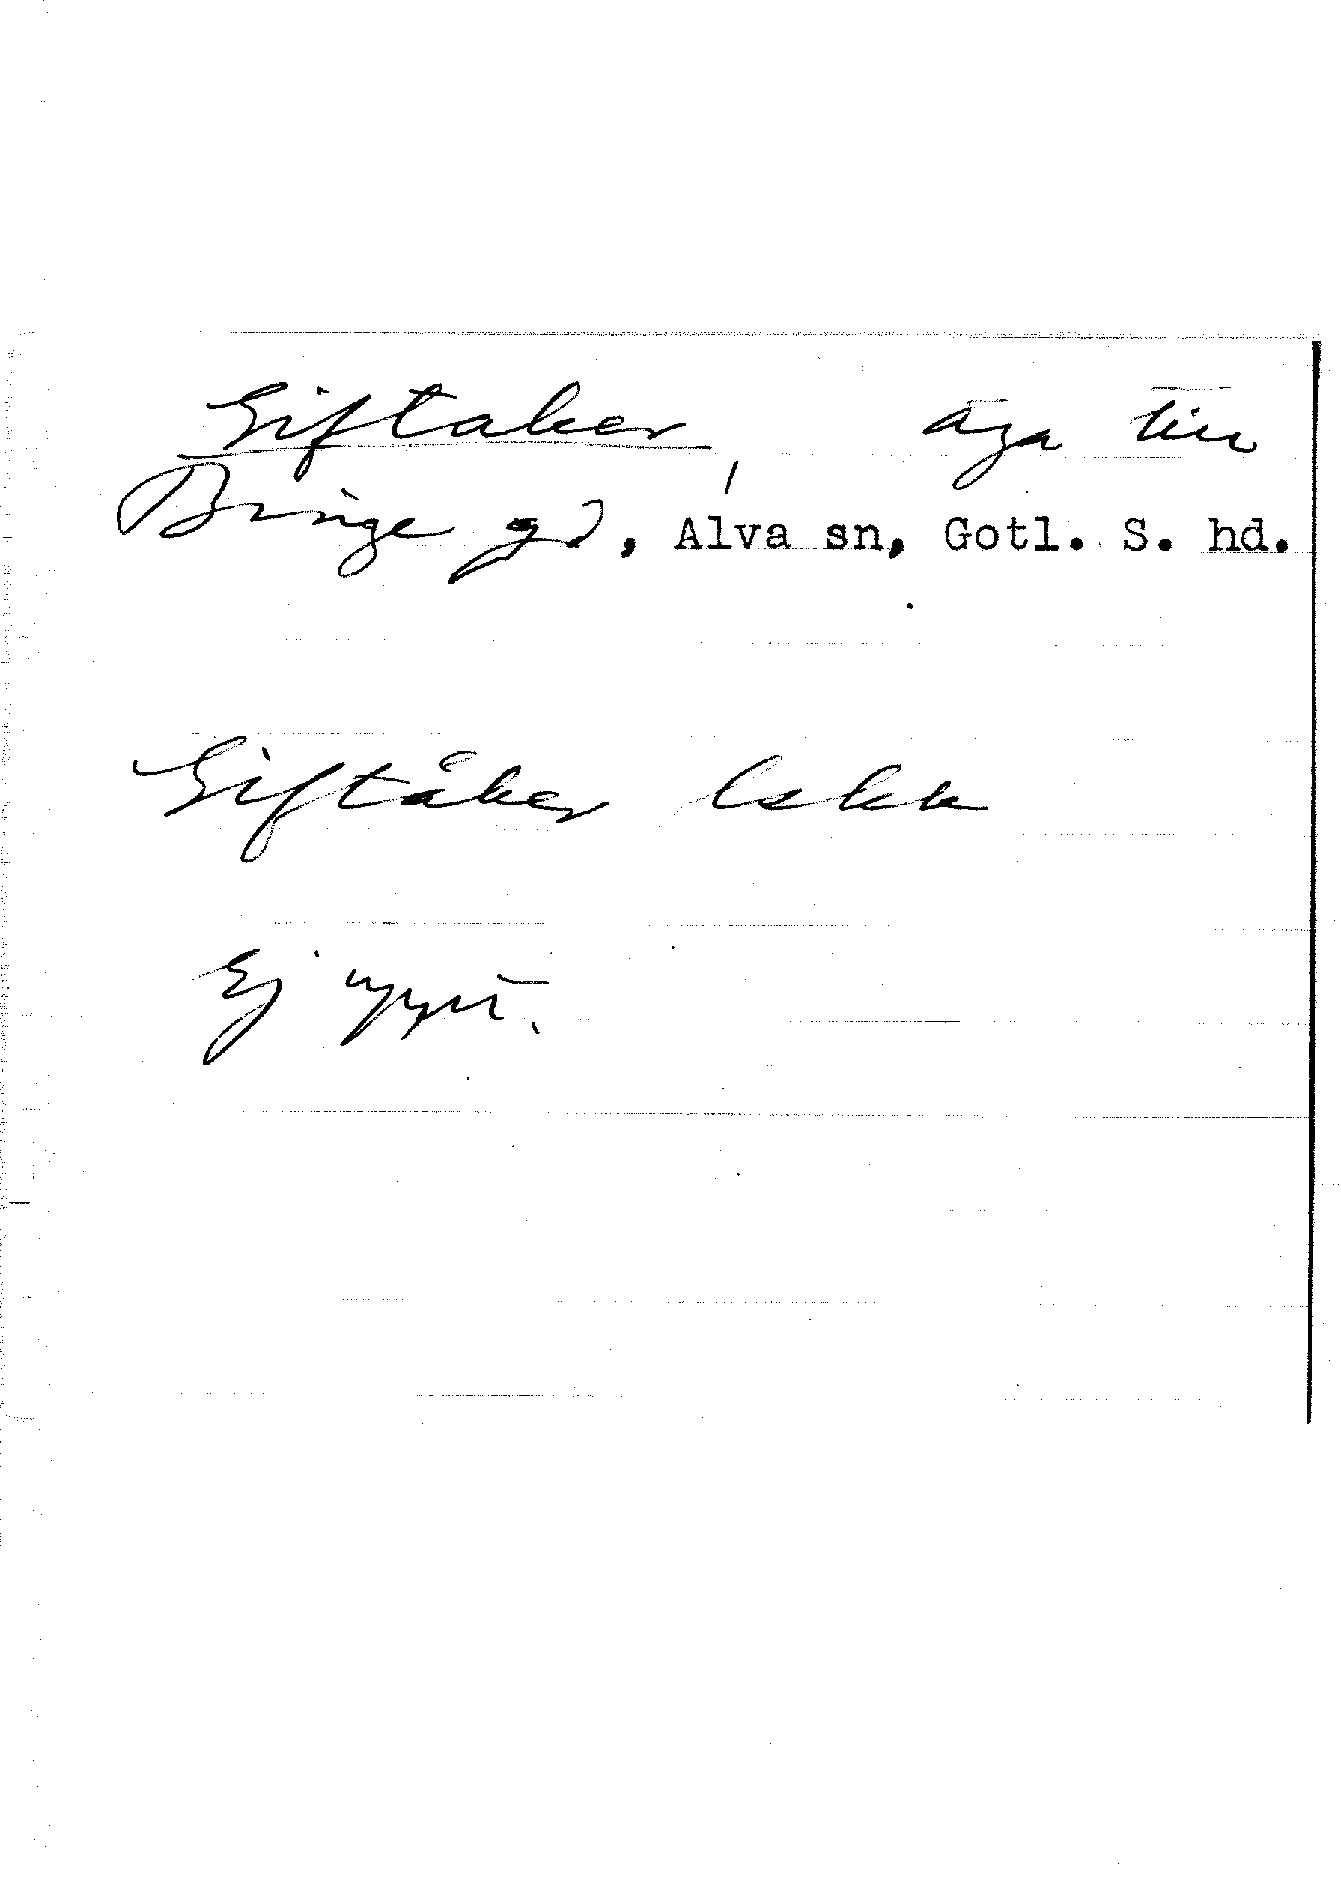 Giftaker, äga till
Bringe gd, Alva sn, Gotl. S. hd.
Giftåker lskk
Ej uppt.